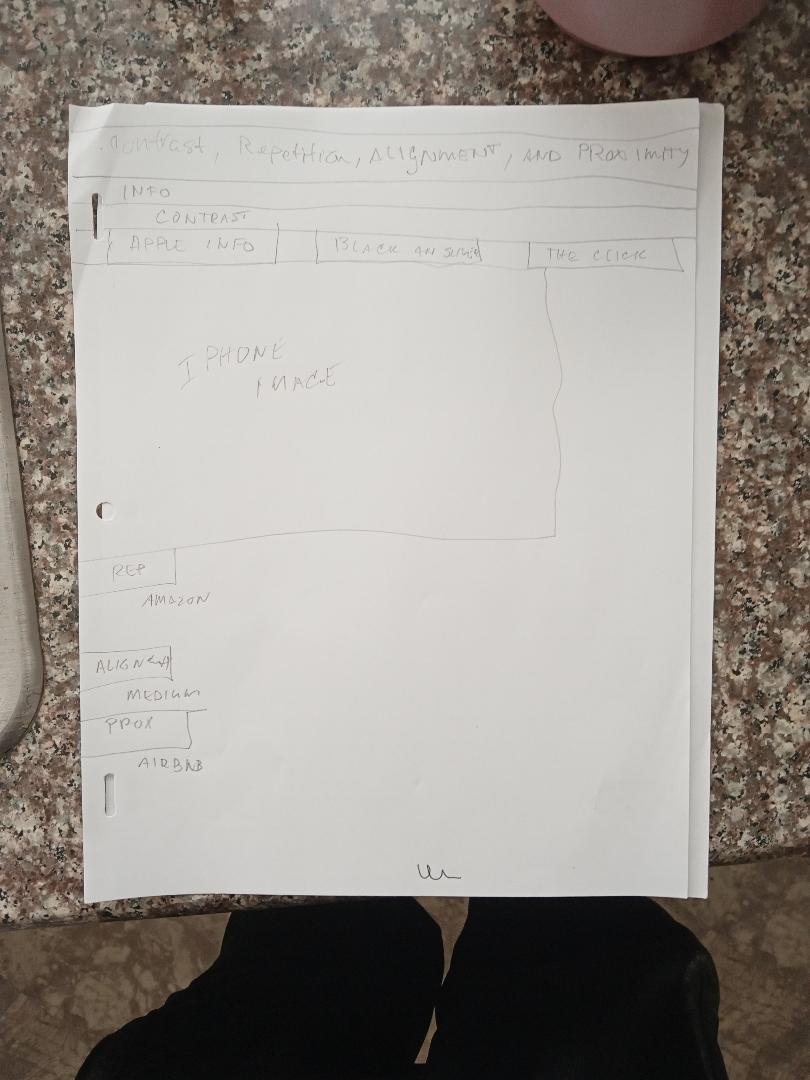 Contrast, Repetition, ALIGNMENT, AND PROXIMITY
INFO
CONTRAST
APPLE INFO BLACK AN THE CLICK
I PHONE
IMAGE
REP
AMAZON
MEDIUM
PROX
AIRBNB